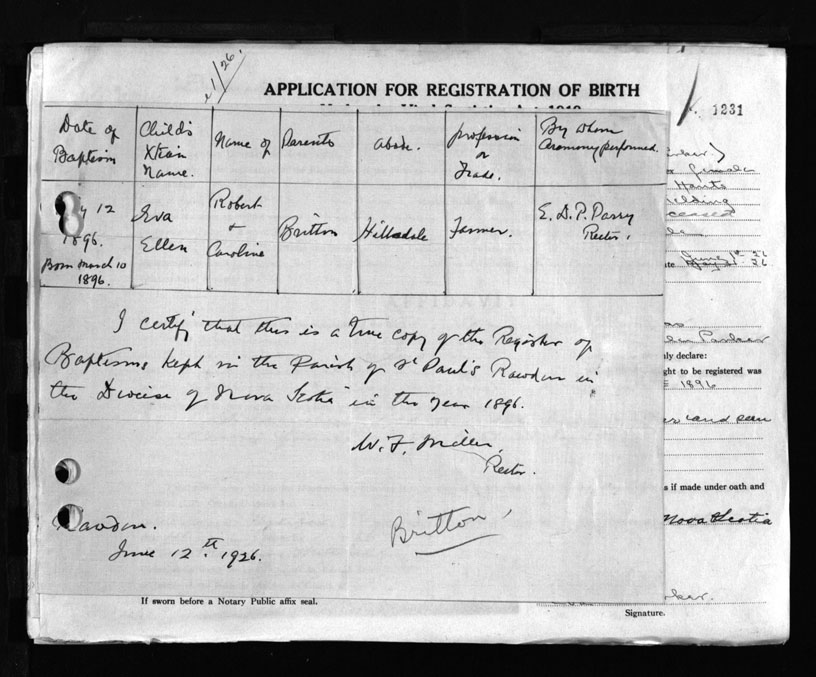 1/26
APPLICATION FOR REGISTRATION OF BIRTH
1231
Date of Baptism
Child's Xtian Name.
Name of Parents
Abode.
Profession or Trade.
By whom Ceremony performed.
y 12
1896.
Born March 10
1896.
Eva
Ellen
Robert
+
Caroline
Britton
Hillsdale
Farmer.
E. D. P. Parry
Rector.
I certify that this is a true copy of the Register of
Baptisms kept in the Parish of St Paul's Rawdon in
the Diocese of Nova Scotia in the year 1896.
W. F. Miller,
Rector.
Rawdon.
June 12th. 1926.
Britton
If sworn before a Notary Public affix seal.
female
Hants
elding
ceased
June 1st 26
Parker
nly declare:
ght to be registered was
1896
and seen
s if made under oath and
Nova Scotia
rker.
Signature.